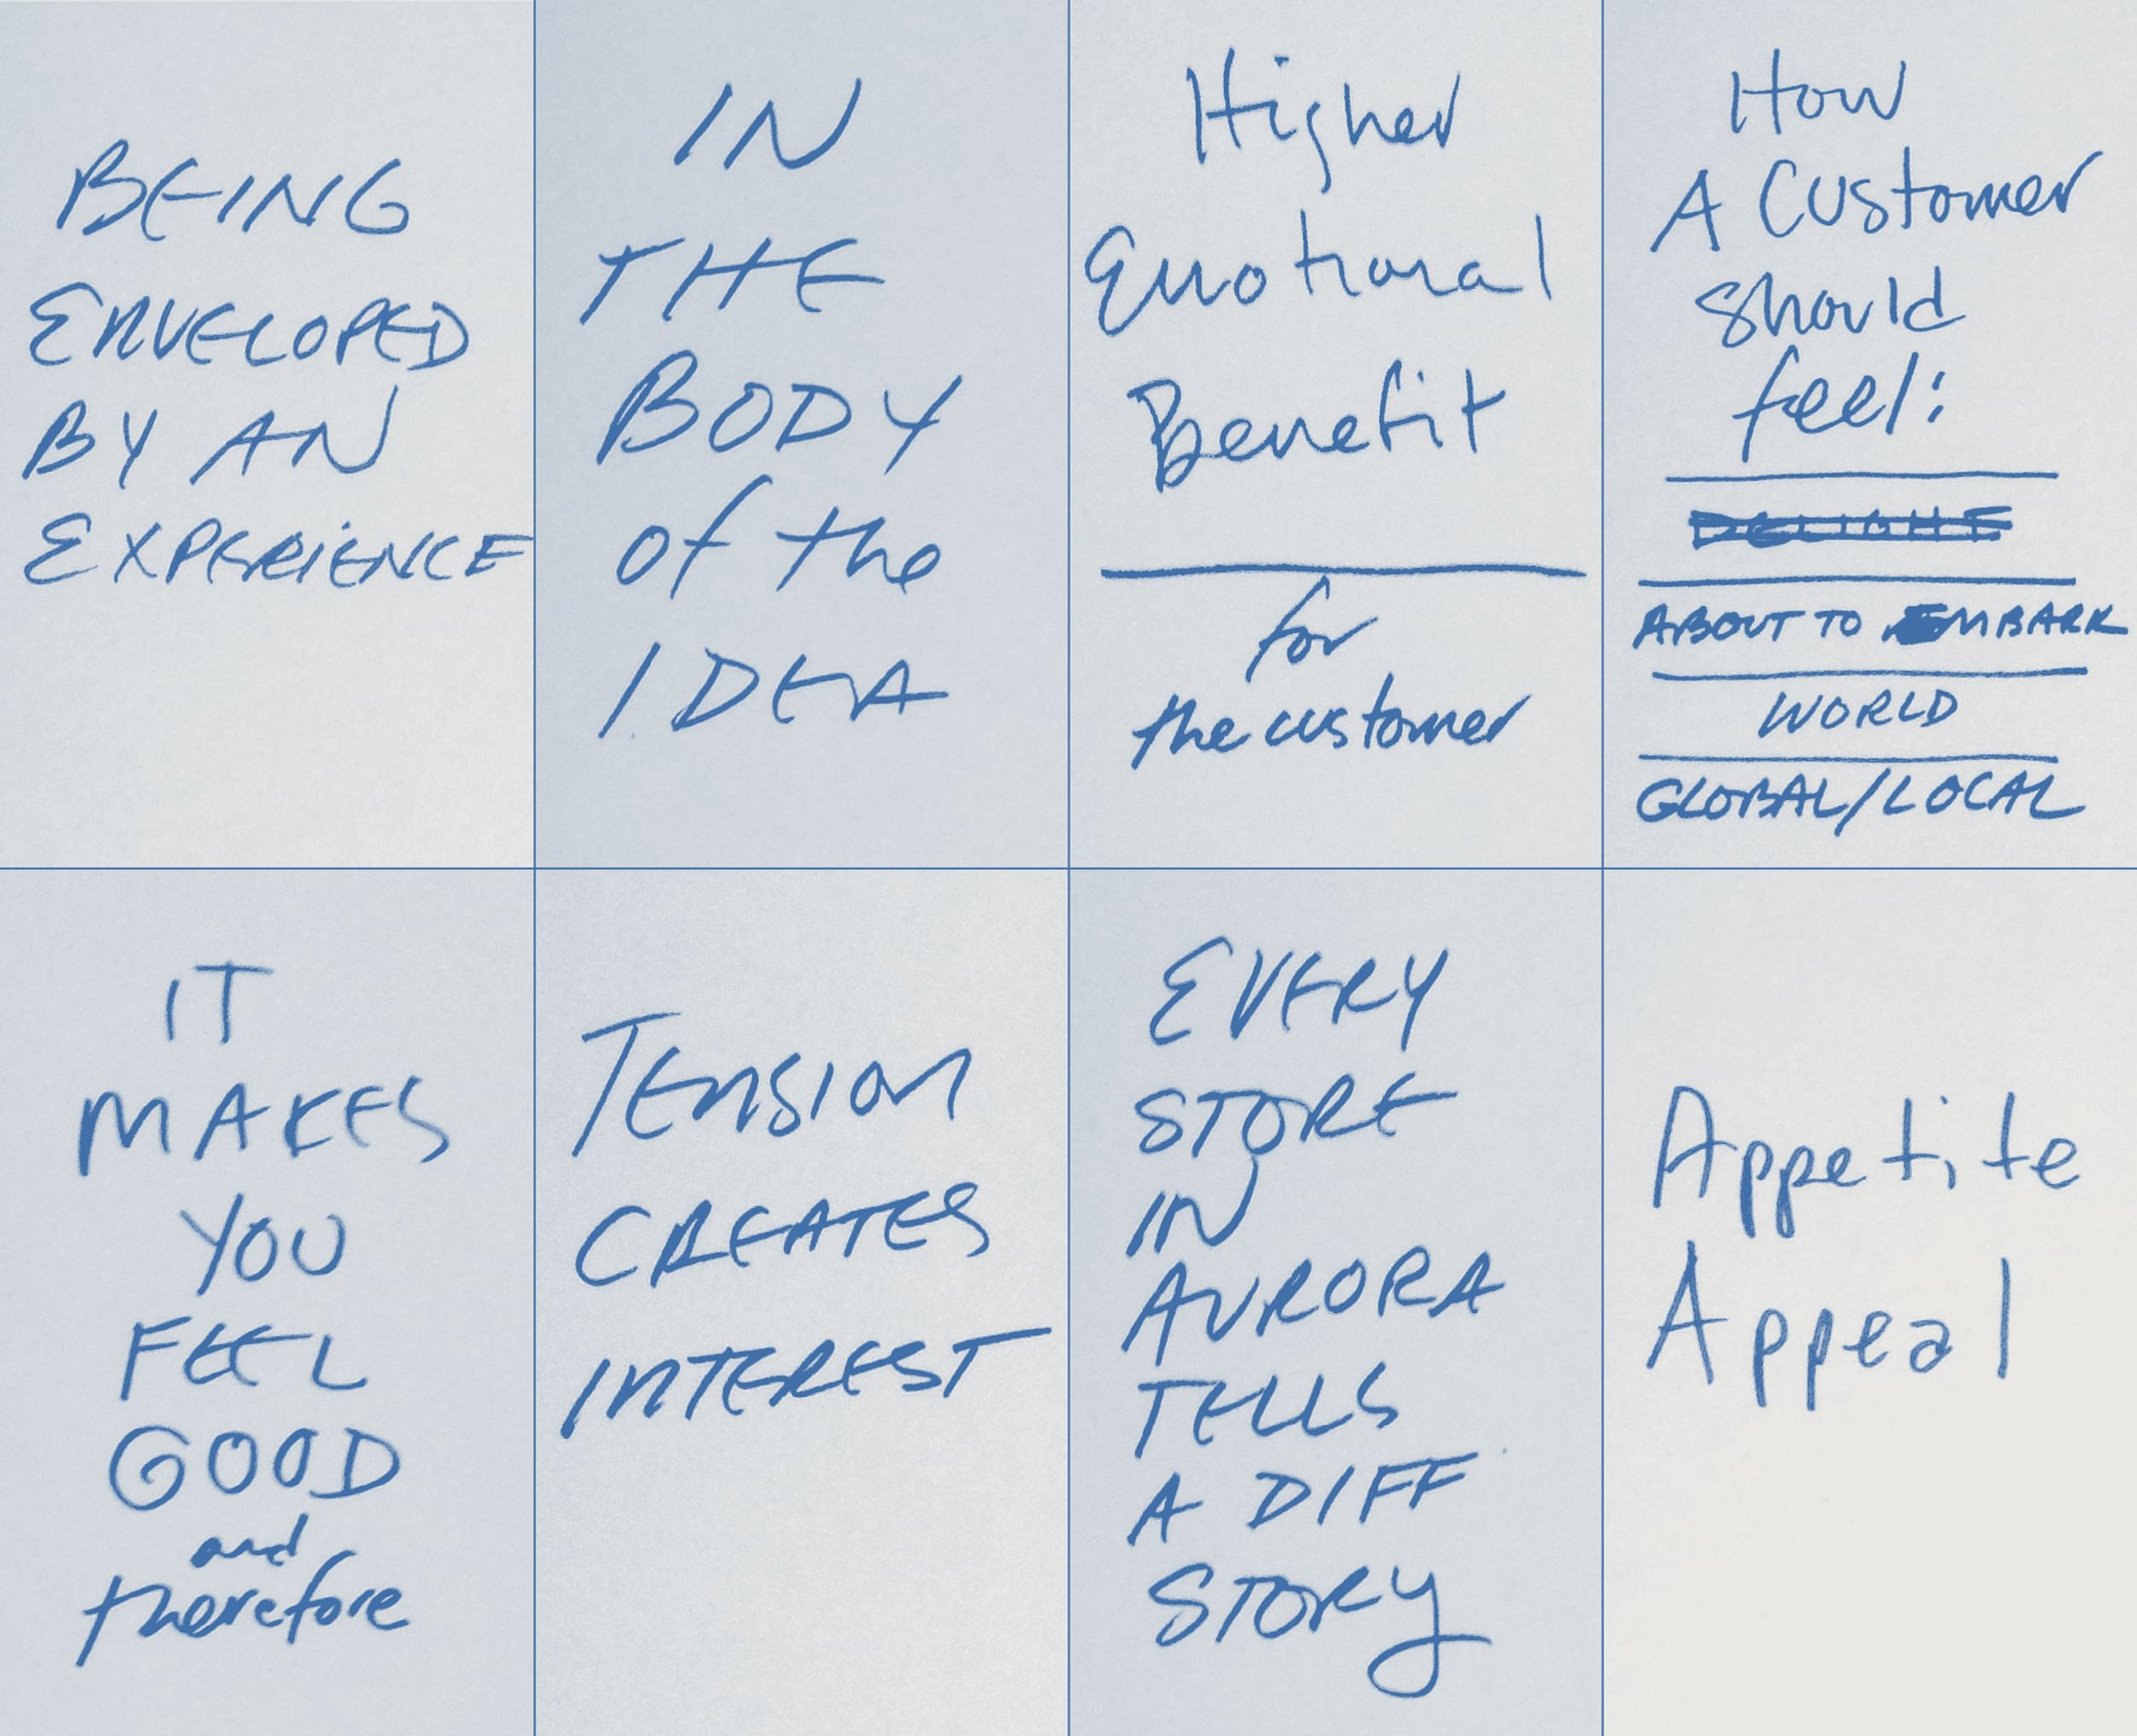 BEING
ENVELOPED
BY AN
EXPERIENCE
IN
THE
BODY
of the
IDEA
Higher
Emotional
Benefit
for
the customer
How
A Customer
should
feel:
DELIGHT
ABOUT TO EMBARK
WORLD
GLOBAL/LOCAL
IT
MAKES
YOU
FEEL
GOOD
and
therefore
TENSION
CREATES
INTEREST
EVERY
STORE
IN
AURORA
TELLS
A DIFF
STORY
Appetite
Appeal